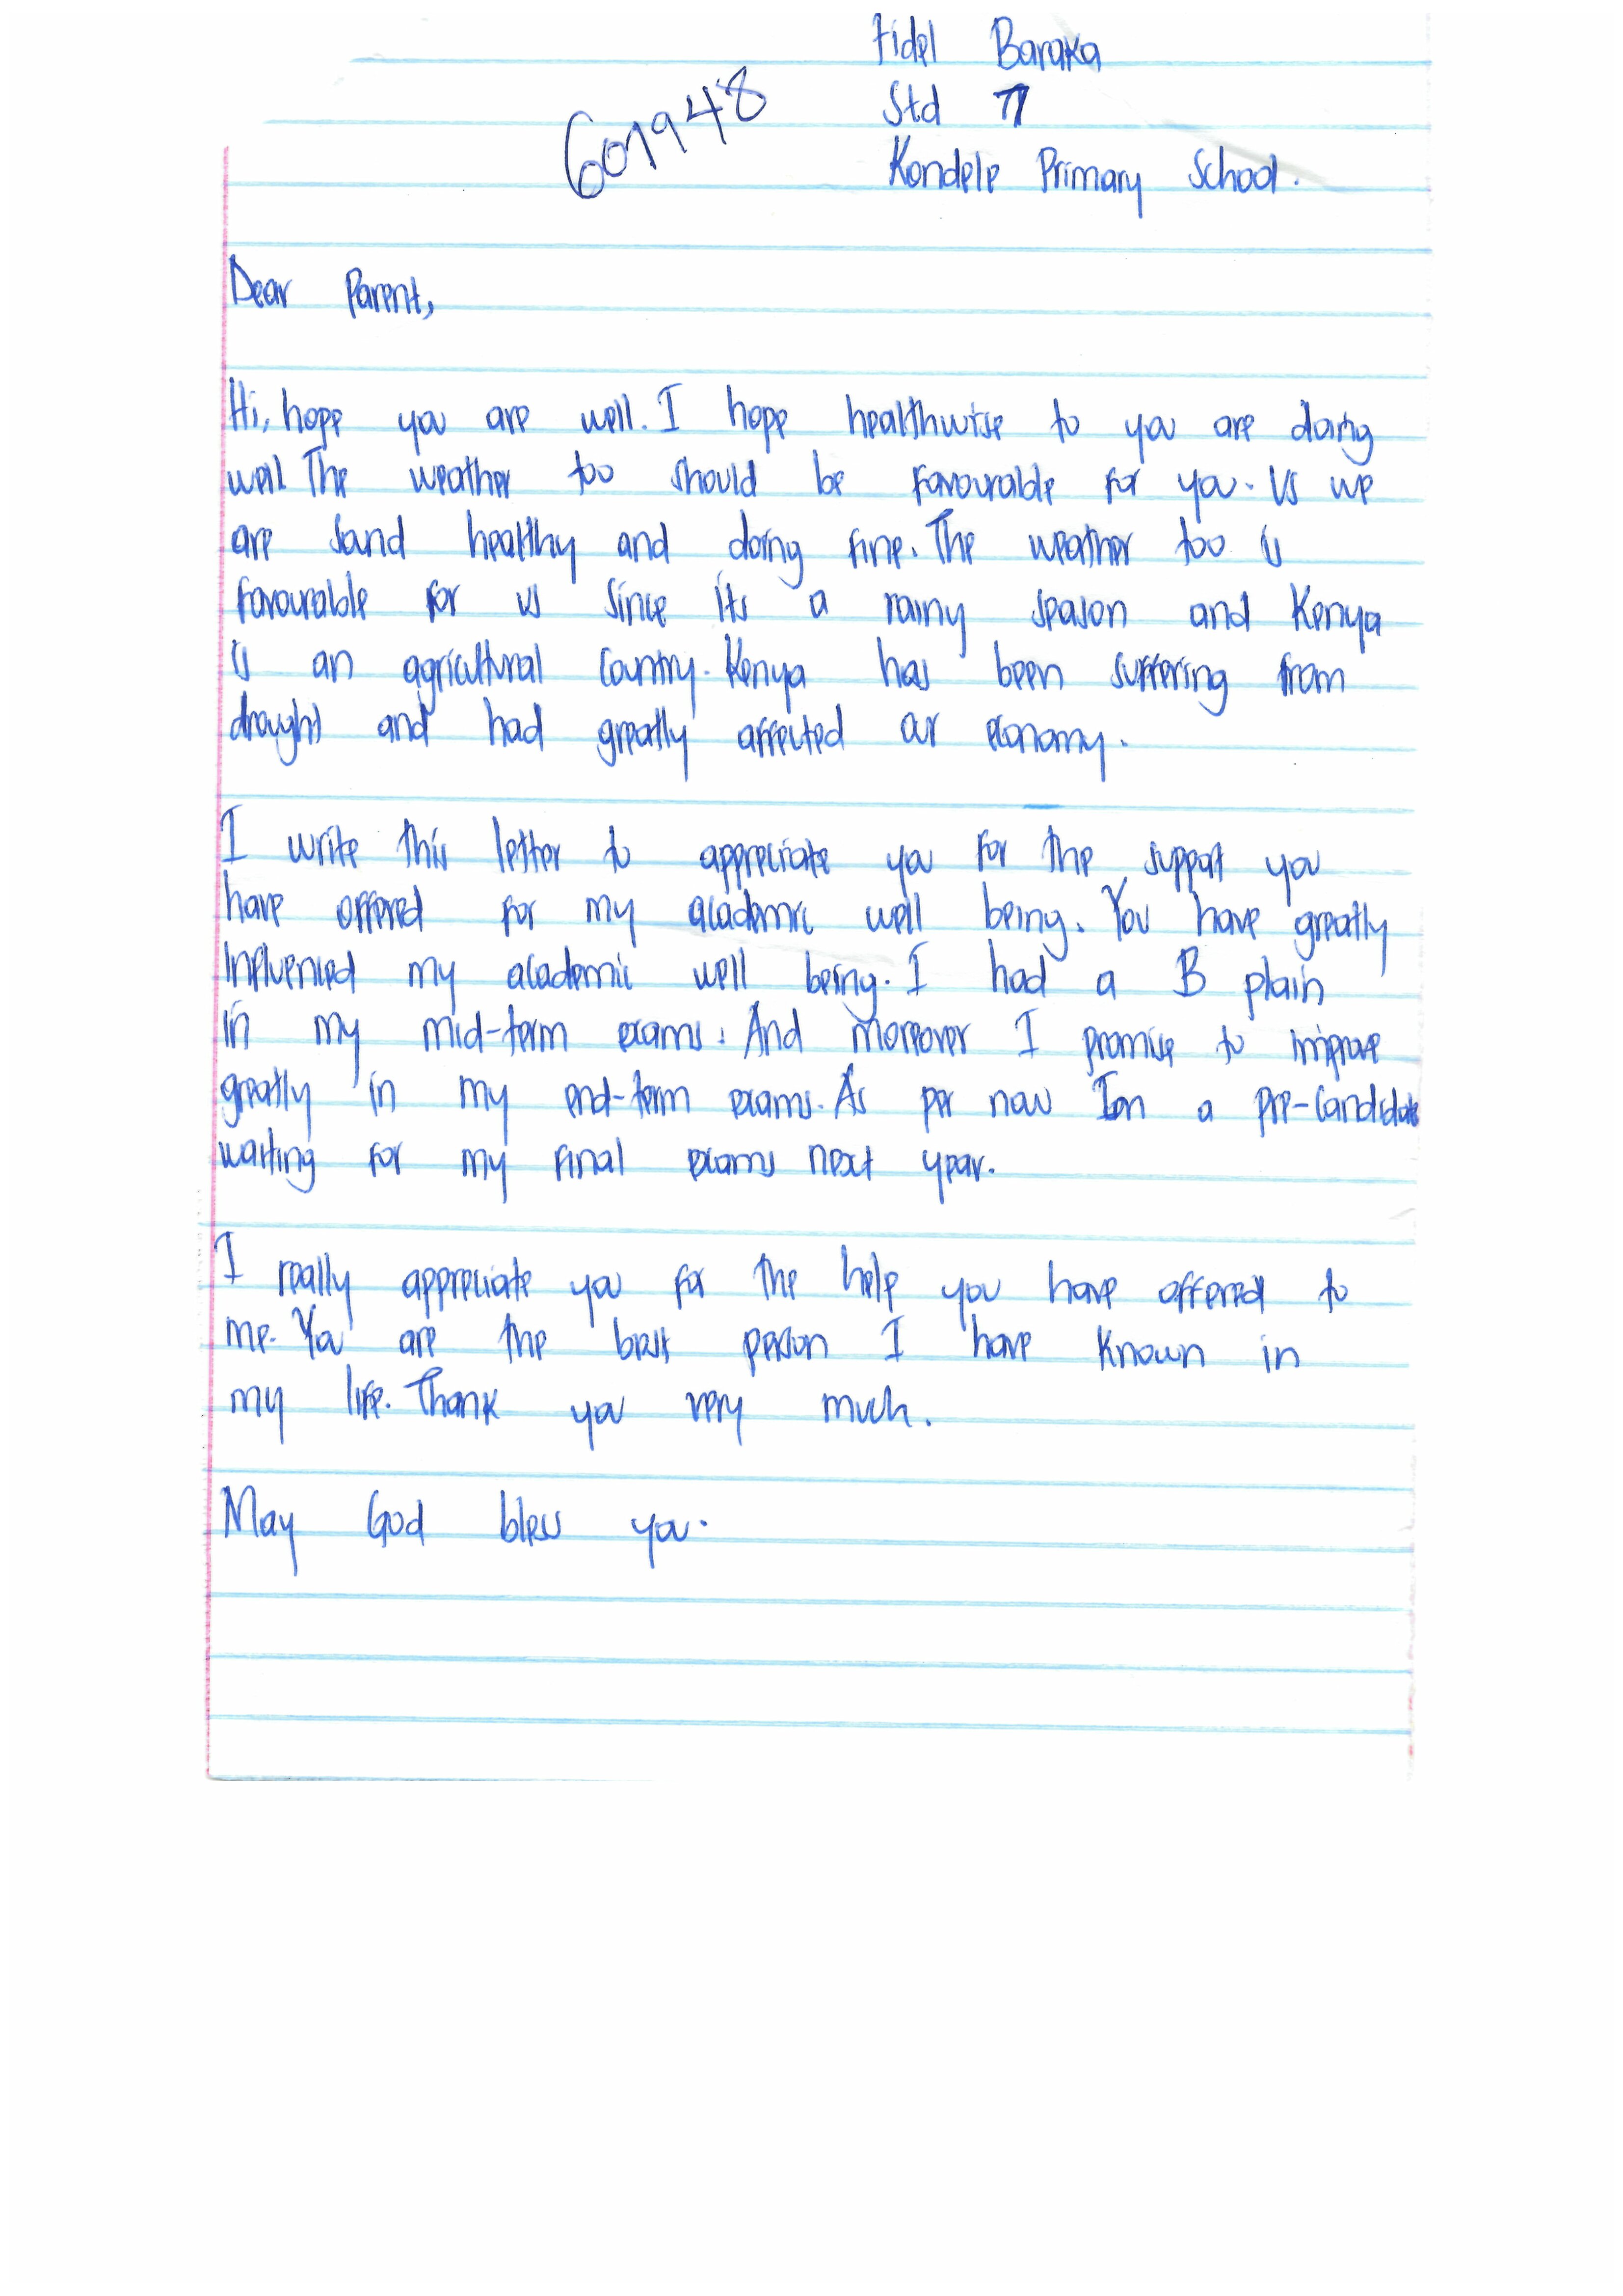 Fidel Baraka
601948
Std 7
Kondele Primary School.
Dear Parent,
Hi, hope you are well. I hope healthwise to you are doing
well The weather too should be favourable for you. Us we
are sand healthy and doing fine. The weather too is
favourable for us since its a rainy season and Kenya
is an agricultural country. Kenya has been suffering from
drought and had greatly affected our economy.
I write this letter to appreciate you for the support you
have offered for my academic well being. You have greatly
influenced my academic well being. I had a B plain
in my mid-term exams. And moreover I promise to improve
greatly in my end-term exams. As per now Im a pre-candidate
waiting for my final exams next year.
I really appreciate you for the help you have offered to
me. You are the best person I have known in
my life. Thank you very much.
May God bless you.